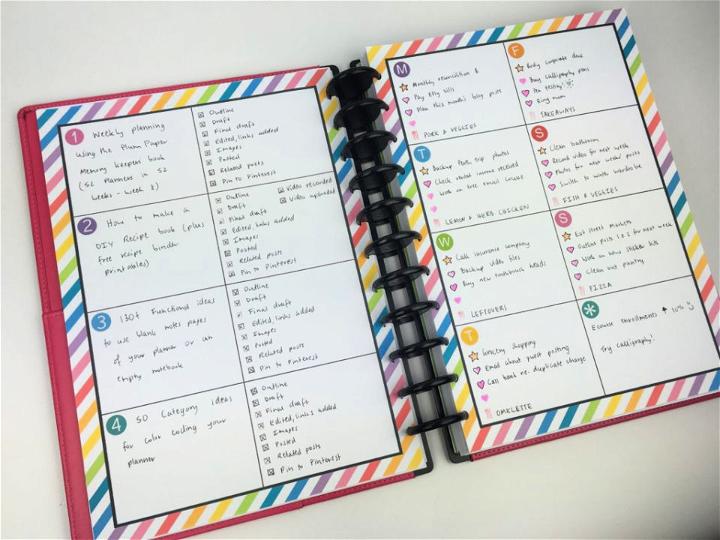 1 Weekly planning
using the Plum Paper
Memory keepers book
(52 Planners in 52
weeks - week 8)
Outline
Draft
Final draft
Edited, links added
Images
Posted
Related posts
Pin to Pinterest
2 How to make a
DIY Recipe book (plus
free recipe binder
printables)
Outline
Draft
Final draft
Edited, links added
Images
Posted
Related posts
Pin to Pinterest
Video recorded
Video uploaded
3 130+ Functional ideas
to use blank notes pages
of your planner or an
empty notebook
Outline
Draft
Final draft
Edited, links added
Images
Posted
Related posts
Pin to Pinterest
4 50 Category ideas
for color coding your
planner
Outline
Draft
Final draft
Edited, links added
Images
Posted
Related posts
Pin to Pinterest
M
Monthly reconciliation &
Pay Etsy bills
Plan this month's blog posts
PORK & VEGGIES
T
Backup Perth trip photos
Check rental income received
Work on free email course
LEMON & HERB CHICKEN
W
Call insurance company
Backup video files
Buy new toothbrush heads
LEFTOVERS
T
Grocery shopping
Email about guest posting
Call bank re: duplicate charge
OMELETTE
F
Body corporate due
Buy calligraphy pens
Pen testing!
Ring mum
TAKEAWAYS
S
Clean bathroom
Record video for next week
Photos for next weeks posts
Switch to winter wardrobe
FISH & VEGGIES
S
Eat street markets
Outline posts 1 & 2 for next week
Work on new sticker kit
Clean out pantry
PIZZA
*
Ecourse enrollments ↑ 10%
Try calligraphy!